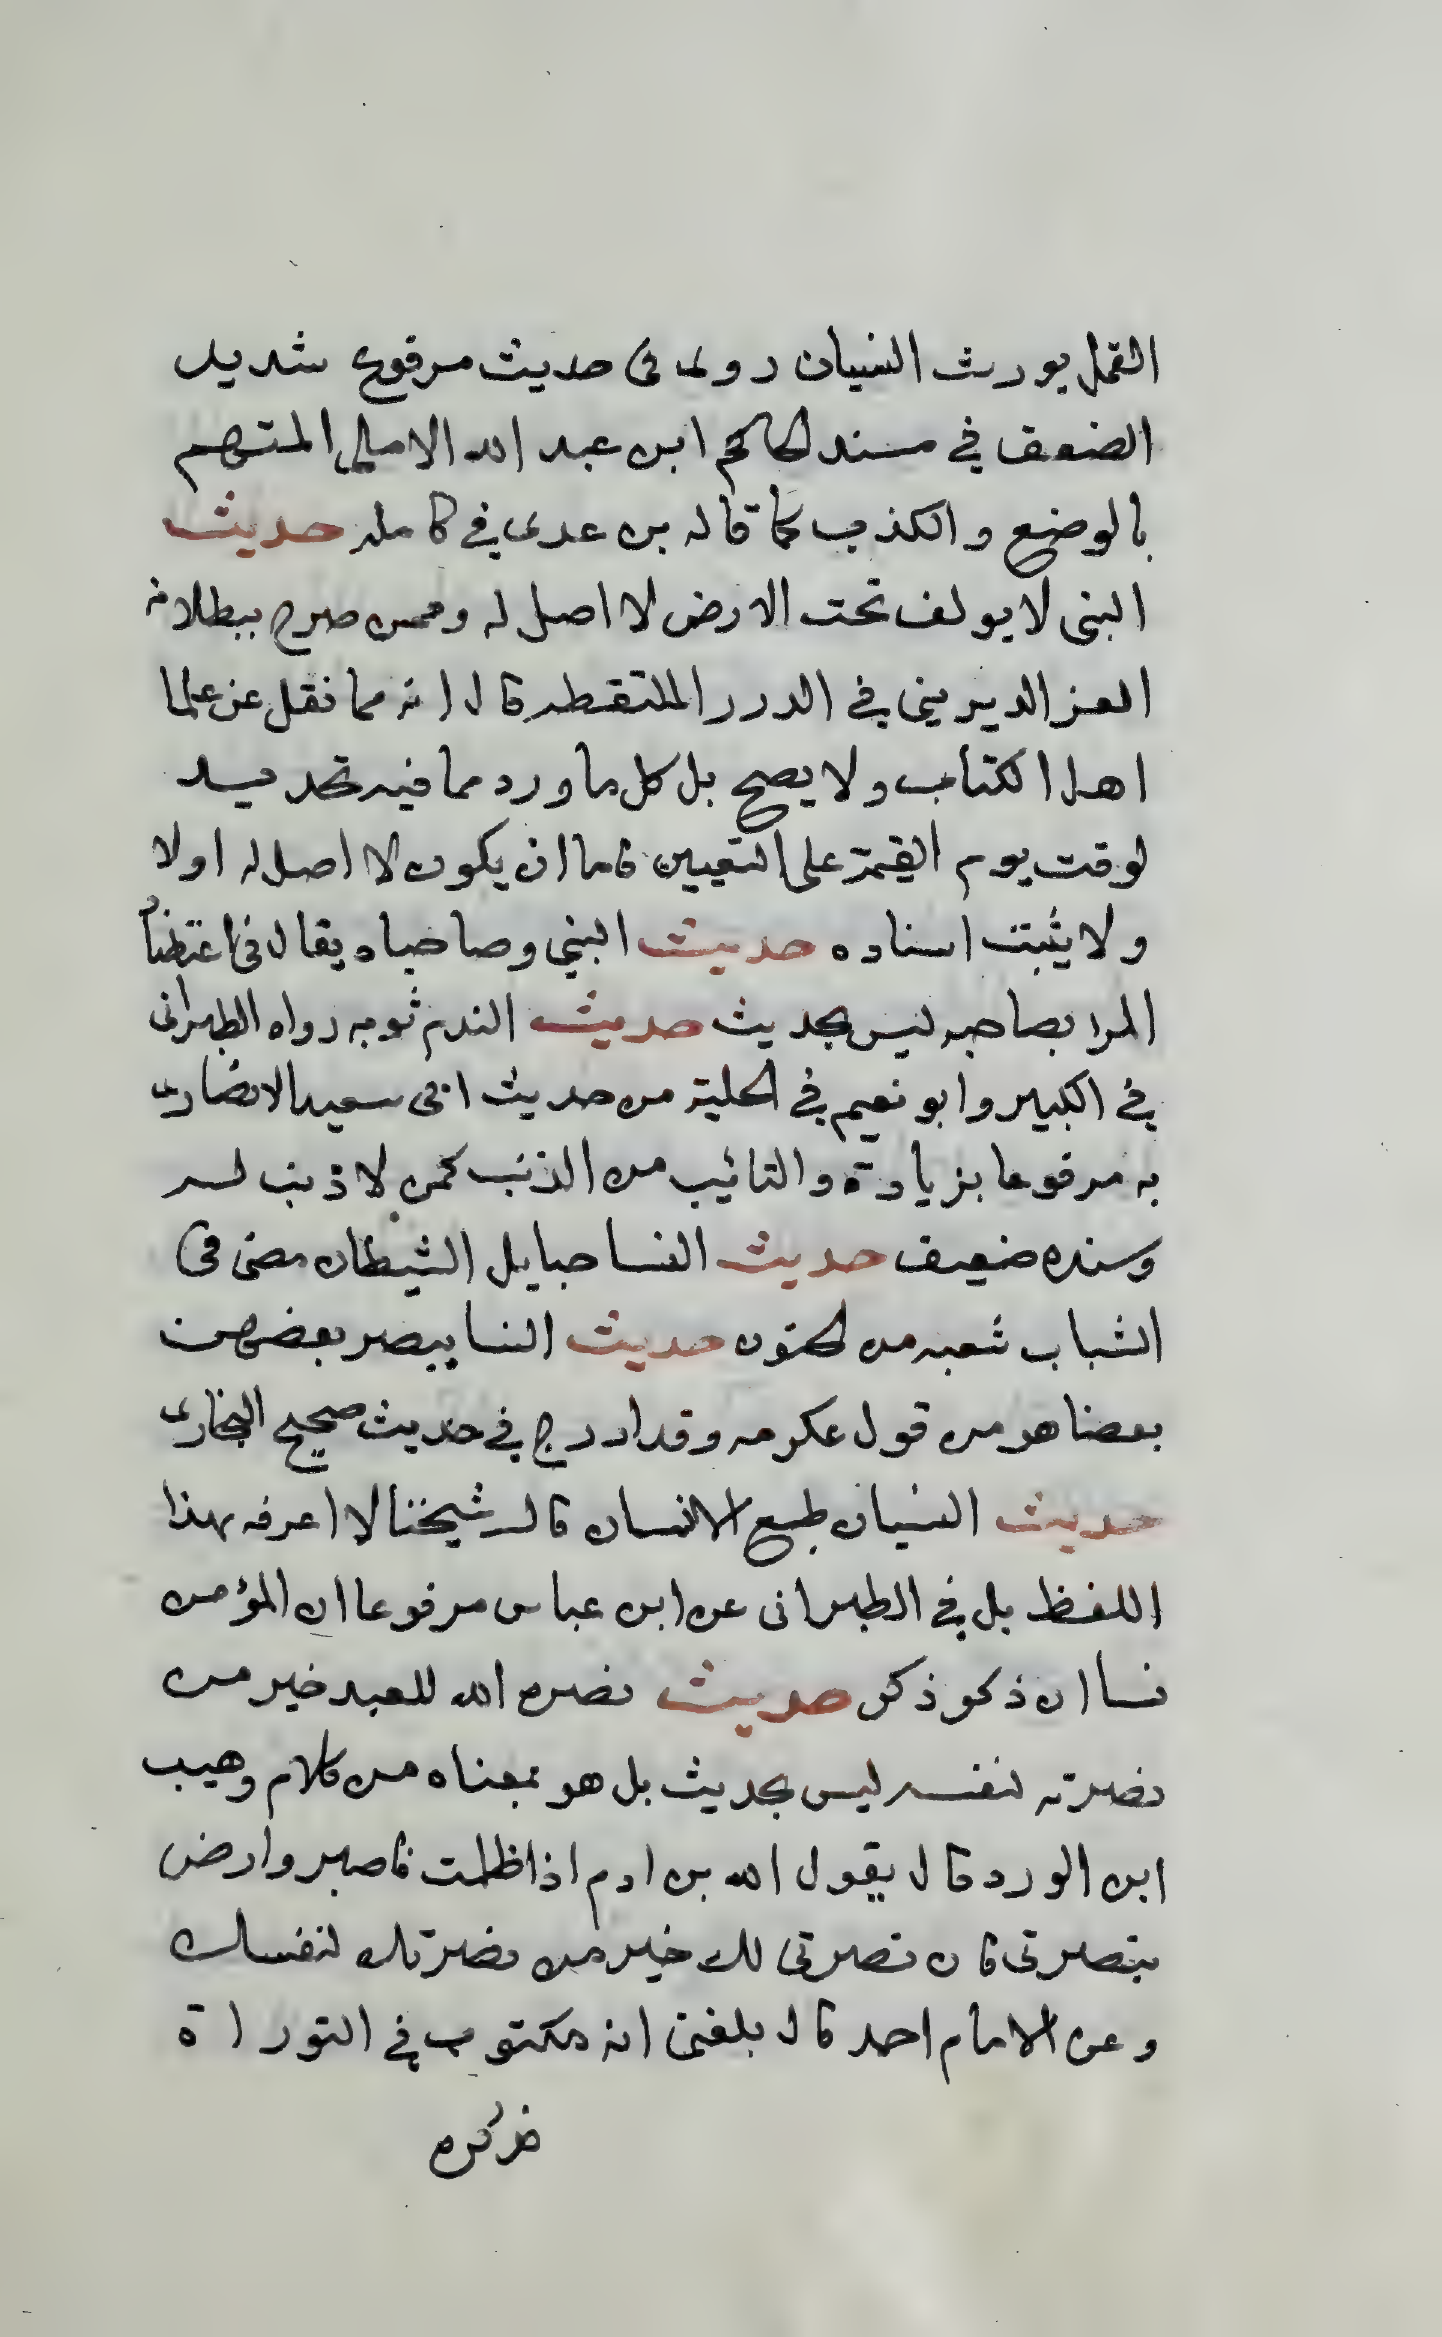 القمل يورث النسيان روى فى حديث مرفوع شديد
الضعف في مسند الحاكم ابن عبد الله الاملى المتهم
بالوضع والكذب كما قاله بن عدى في كامله حديث
النبى لا يولف تحت الارض لا اصل له وممن صرح ببطلانه
العز الديرينى في الدرر الملتقطه قال انه مما نقل عن علما
اهل الكتاب ولا يصح بل كل ما ورد مما فيه تحديد
لوقت يوم القيمة على التعيين فاما ان يكون لا اصل له اولا
ولا يثبت اسناده حديث النبي وصاحباه يقال فى
المرا بصاحبه ليس بحديث حديث الندم توبه رواه الطبرانى
في الكبير وابو نعيم في الحلية من حديث ابى سعيد الانصارى
به مرفوعا بزيادة والتائيب من الذنب كمن لا ذنب له
وسنده ضعيف حديث النسا حبايل الشيطان مضى فى
الشباب شعبه من الجنون حديث النسا يبصر بعضهن
بعضا هو من قول عكرمه وقد ادرج في حديث صحيح البخارى
حديث النسيان طبع الانسان قال شيخنا لا اعرفه بهذا
اللفظ بل في الطبرانى عن ابن عباس مرفوعا ان المؤمن
نسا ان ذكر ذكر حديث نصره الله للعبد خير من
نصرته لنفسه ليس بحديث بل هو بمعناه من كلام وهيب
ابن الورد قال يقول الله بن ادم اذا ظلمت فاصبر وارض
بنصرتى فان نصرتى لك خير من نصرتك لنفسك
وعن الامام احمد قال بلغنى انه مكتوب في التوراة